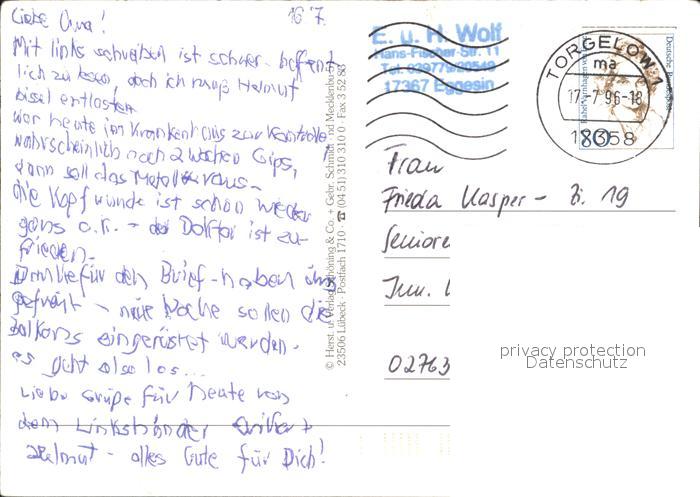 16.7.
Liebe Oma!
Mit links schreiben ist schwer - hoffent-
lich zu lesen, doch ich muß Helmut
bissel entlasten
war heute im Krankenhaus zur Kontrolle
wahrscheinlich noch 2 Wochen Gips,
dann soll das Metall raus -
die Kopfwunde ist schon wieder
ganz o.k. - der Doktor ist zu-
frieden.
Danke für den Brief - haben uns
gefreut - Woche sollen die
Balkons eingerüstet werden.
es geht also los...
Liebe Grüße für heute von
dem Linkshänder
Helmut - alles Gute für Dich!
© Herst. u. Verlag Schöning & Co. + Gebr. Schmidt · nd Mecklenburg
23506 Lübeck · Postfach 1710 · ☎ (04 51) 310 310 0 · Fax 3 52 83
E. u. H. Wolf
Hans-Fischer-Str. 11
Tel. 039779/20549
17367 Eggesin
TORGELOW
ma
17.-7.96-18
17358
80
Deutsche Bundespost
Frau
Frieda Kasper - Zi. 19
Seniore
02763
privacy protection
Datenschutz